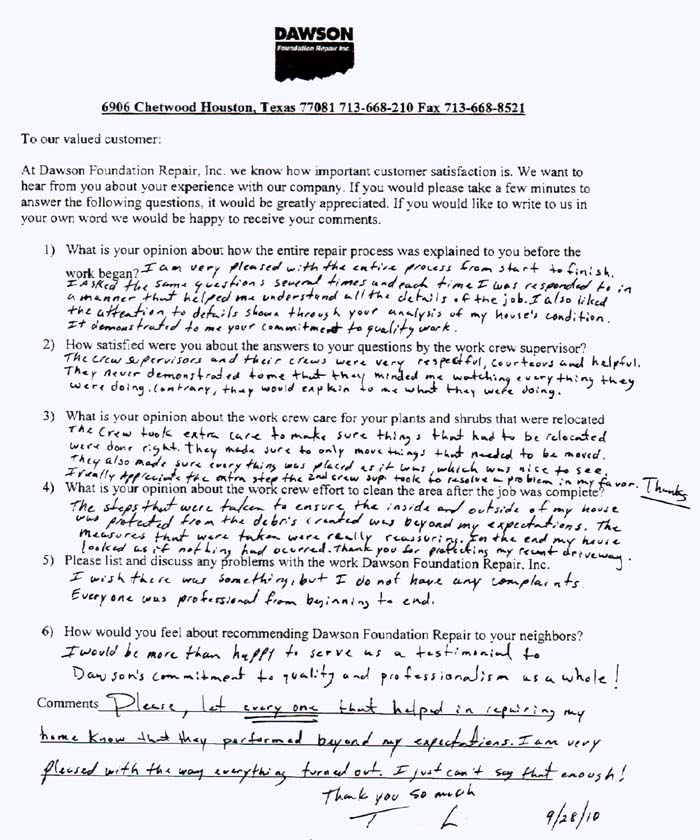 DAWSON
Foundation Repair Inc.
6906 Chetwood Houston, Texas 77081 713-668-210 Fax 713-668-8521
To our valued customer:
At Dawson Foundation Repair, Inc. we know how important customer satisfaction is. We want to
hear from you about your experience with our company. If you would please take a few minutes to
answer the following questions, it would be greatly appreciated. If you would like to write to us in
your own word we would be happy to receive your comments.
1) What is your opinion about how the entire repair process was explained to you before the
work began? I am very pleased with the entire process from start to finish.
I Asked the same questions several times and each time I was responded to in
a manner that helped me understand all the details of the job. I also liked
the attention to details shown through your analysis of my house's condition.
It demonstrated to me your commitment to quality work.
2) How satisfied were you about the answers to your questions by the work crew supervisor?
The crew supervisors and their crews were very respectful, courteous and helpful.
They never demonstrated to me that they minded me watching everything they
were doing. Contrary, they would explain to me what they were doing.
3) What is your opinion about the work crew care for your plants and shrubs that were relocated
The Crew took extra care to make sure things that had to be relocated
were done right. They made sure to only move things that needed to be moved.
They also made sure every thing was placed as it was, which was nice to see.
I really appreciate the extra step the 2nd crew sup. took to resolve a problem in my favor. Thanks
4) What is your opinion about the work crew effort to clean the area after the job was complete?
The steps that were taken to ensure the inside and outside of my house
was protected from the debris created was beyond my expectations. The
measures that were taken were really reassuring. In the end my house
looked as if nothing had ocurred. Thank you for protecting my recent driveway.
5) Please list and discuss any problems with the work Dawson Foundation Repair, Inc.
I wish there was something, but I do not have any complaints.
Everyone was professional from beginning to end.
6) How would you feel about recommending Dawson Foundation Repair to your neighbors?
I would be more than happy to serve as a testimonial to
Dawson's commitment to quality and professionalism as a whole!
Comments Please, let every one that helped in repairing my
home know that they performed beyond my expectations. I am very
pleased with the way everything turned out. I just can't say that enough!
Thank you so much
T L 9/28/10